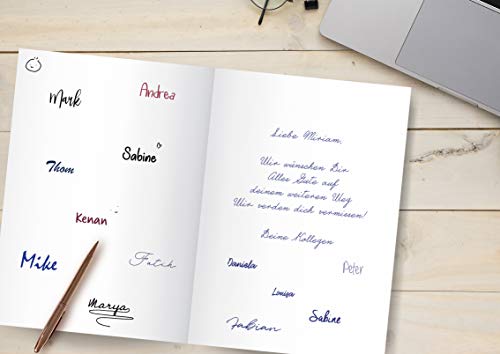 Mark
Andrea
Sabine
Thom
Kenan
Mike
Fatih
Marya
Liebe Miriam,
Wir wünschen Dir
Alles Gute auf
deinem weiteren Weg
Wir werden dich vermissen!
Deine Kollegen
Daniela
Peter
Louisa
Sabine
Fabian